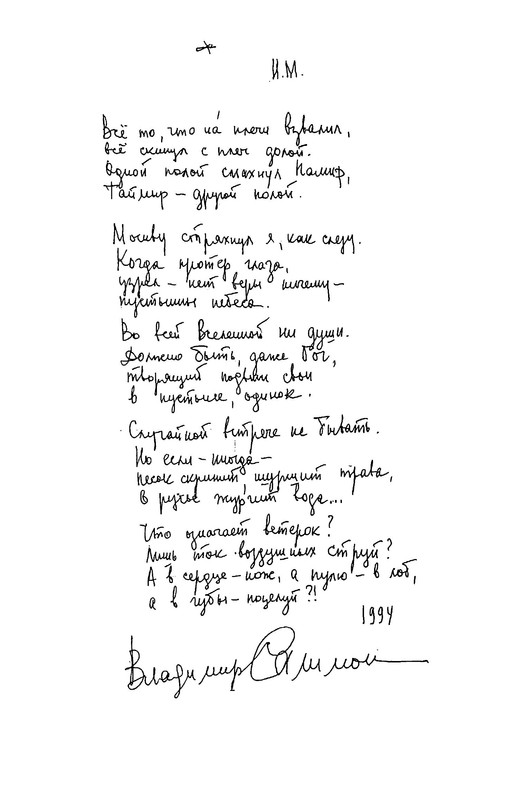 *
И.М.
Всё то, что на́ плечи взвалил,
всё скинул с плеч долой.
Одной полой смахнул Памир,
Таймыр – другой полой.
Москву стряхнул я, как слезу.
Когда протёр глаза,
узрел – нет веры ничему –
пустынны небеса.
Во всей Вселенной ни души.
Должно быть, даже Бог,
творящий подвиги свои
в пустыне, одинок.
Случайной встрече не бывать.
Но если – иногда –
песок скрипит, шуршит трава,
в ручье журчит вода...
Что означает ветерок?
Лишь ток воздушных струй?
А в сердце – нож, а пулю – в лоб,
а в губы – поцелуй?!
1994
Владимир Салимон